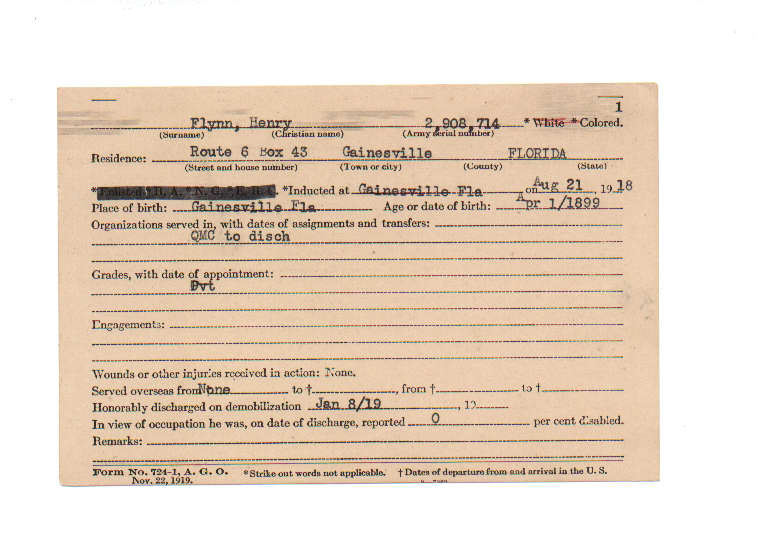 1
Flynn, Henry 2,908,714 * White * Colored.
(Surname) (Christian name) (Army serial number)
Residence: Route 6 Box 43 Gainesville FLORIDA
(Street and house number) (Town or city) (County) (State)
*Enlisted * R. A. * N. G. * E. R. C. *Inducted at Gainesville Fla on Aug 21, 1918
Place of birth: Gainesville Fla Age or date of birth: Apr 1/1899
Organizations served in, with dates of assignments and transfers:
QMC to disch
Grades, with date of appointment:
Pvt
Engagements:
Wounds or other injuries received in action: None.
Served overseas from None to †, from † to †
Honorably discharged on demobilization Jan 8/19, 19
In view of occupation he was, on date of discharge, reported 0 per cent disabled.
Remarks:
Form No. 724-1, A. G. O. *Strike out words not applicable. † Dates of departure from and arrival in the U. S.
Nov. 22, 1919.